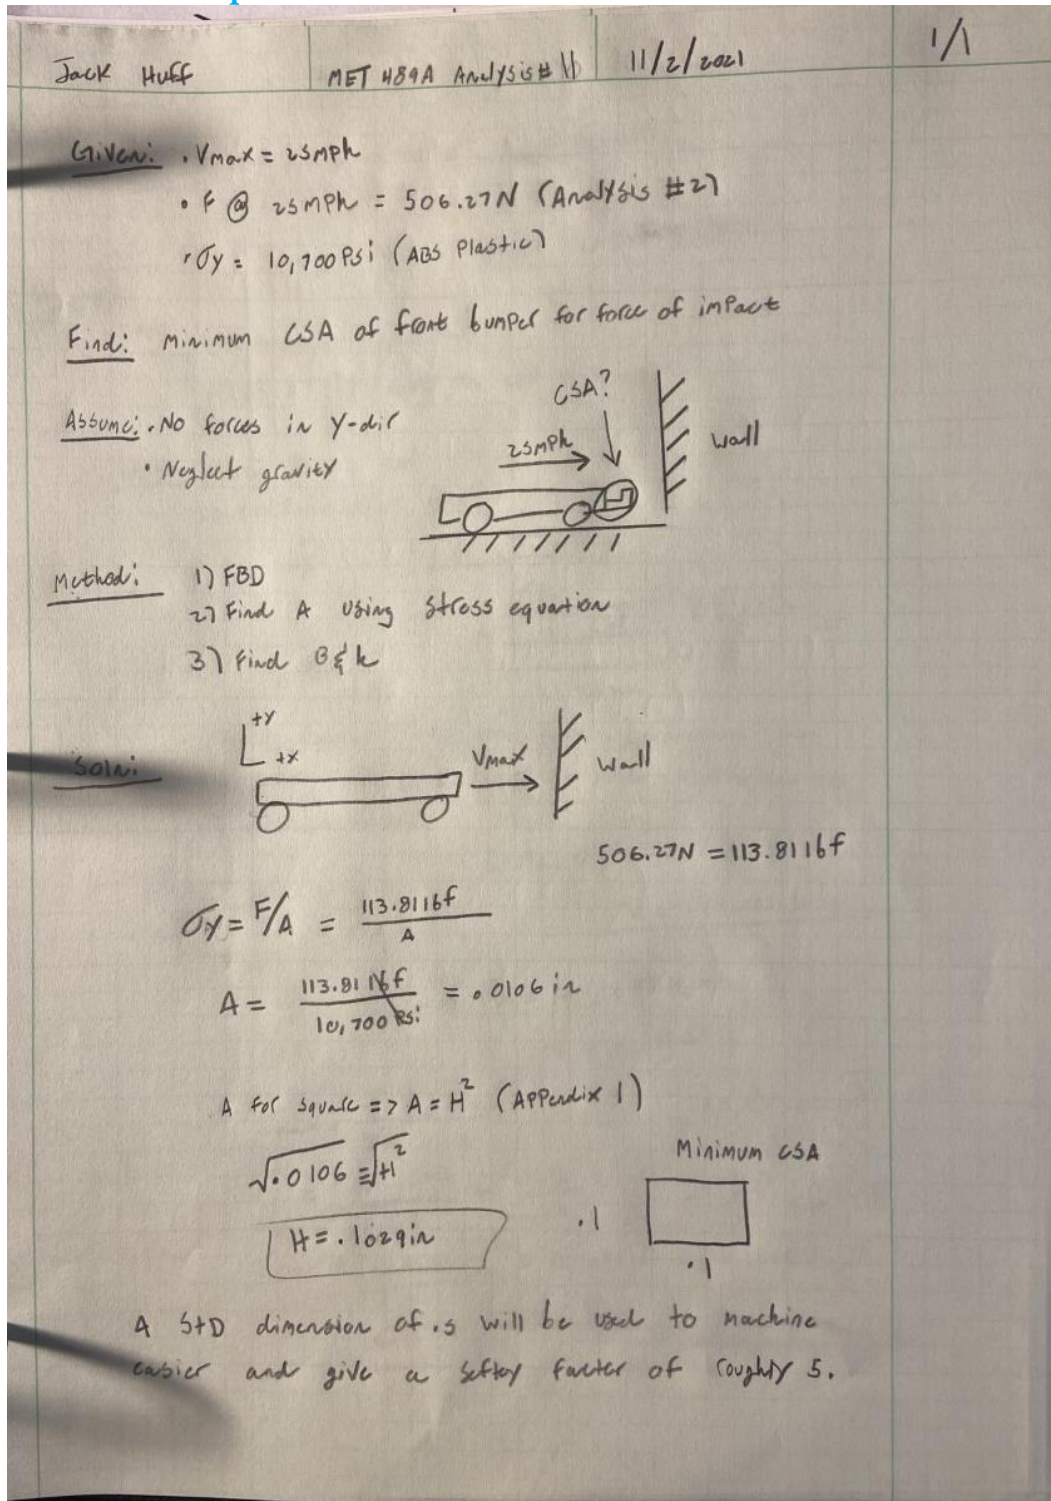 Jack Huff MET 489A Analysis # 11 11/2/2021 1/1
Given: • Vmax = 25mph
• F @ 25mph = 506.27N (Analysis #2)
• σy = 10,700 Psi (ABS Plastic)
Find: minimum CSA of front bumper for force of impact
CSA?
Assume: • No forces in y-dir
25mph
wall
• Neglect gravity
Method: 1) FBD
2) Find A using stress equation
3) Find B & h
+y
+x
Soln:
Vmax
wall
506.27N = 113.81 lbf
σy = F/A = 113.81 lbf / A
A = 113.81 lbf / 10,700 Psi = .0106 in
A for square => A = H² (Appendix 1)
Minimum CSA
√.0106 = √H²
H = .1029in
.1
.1
A StD dimension of .5 will be used to machine
easier and give a seftey factor of roughly 5.